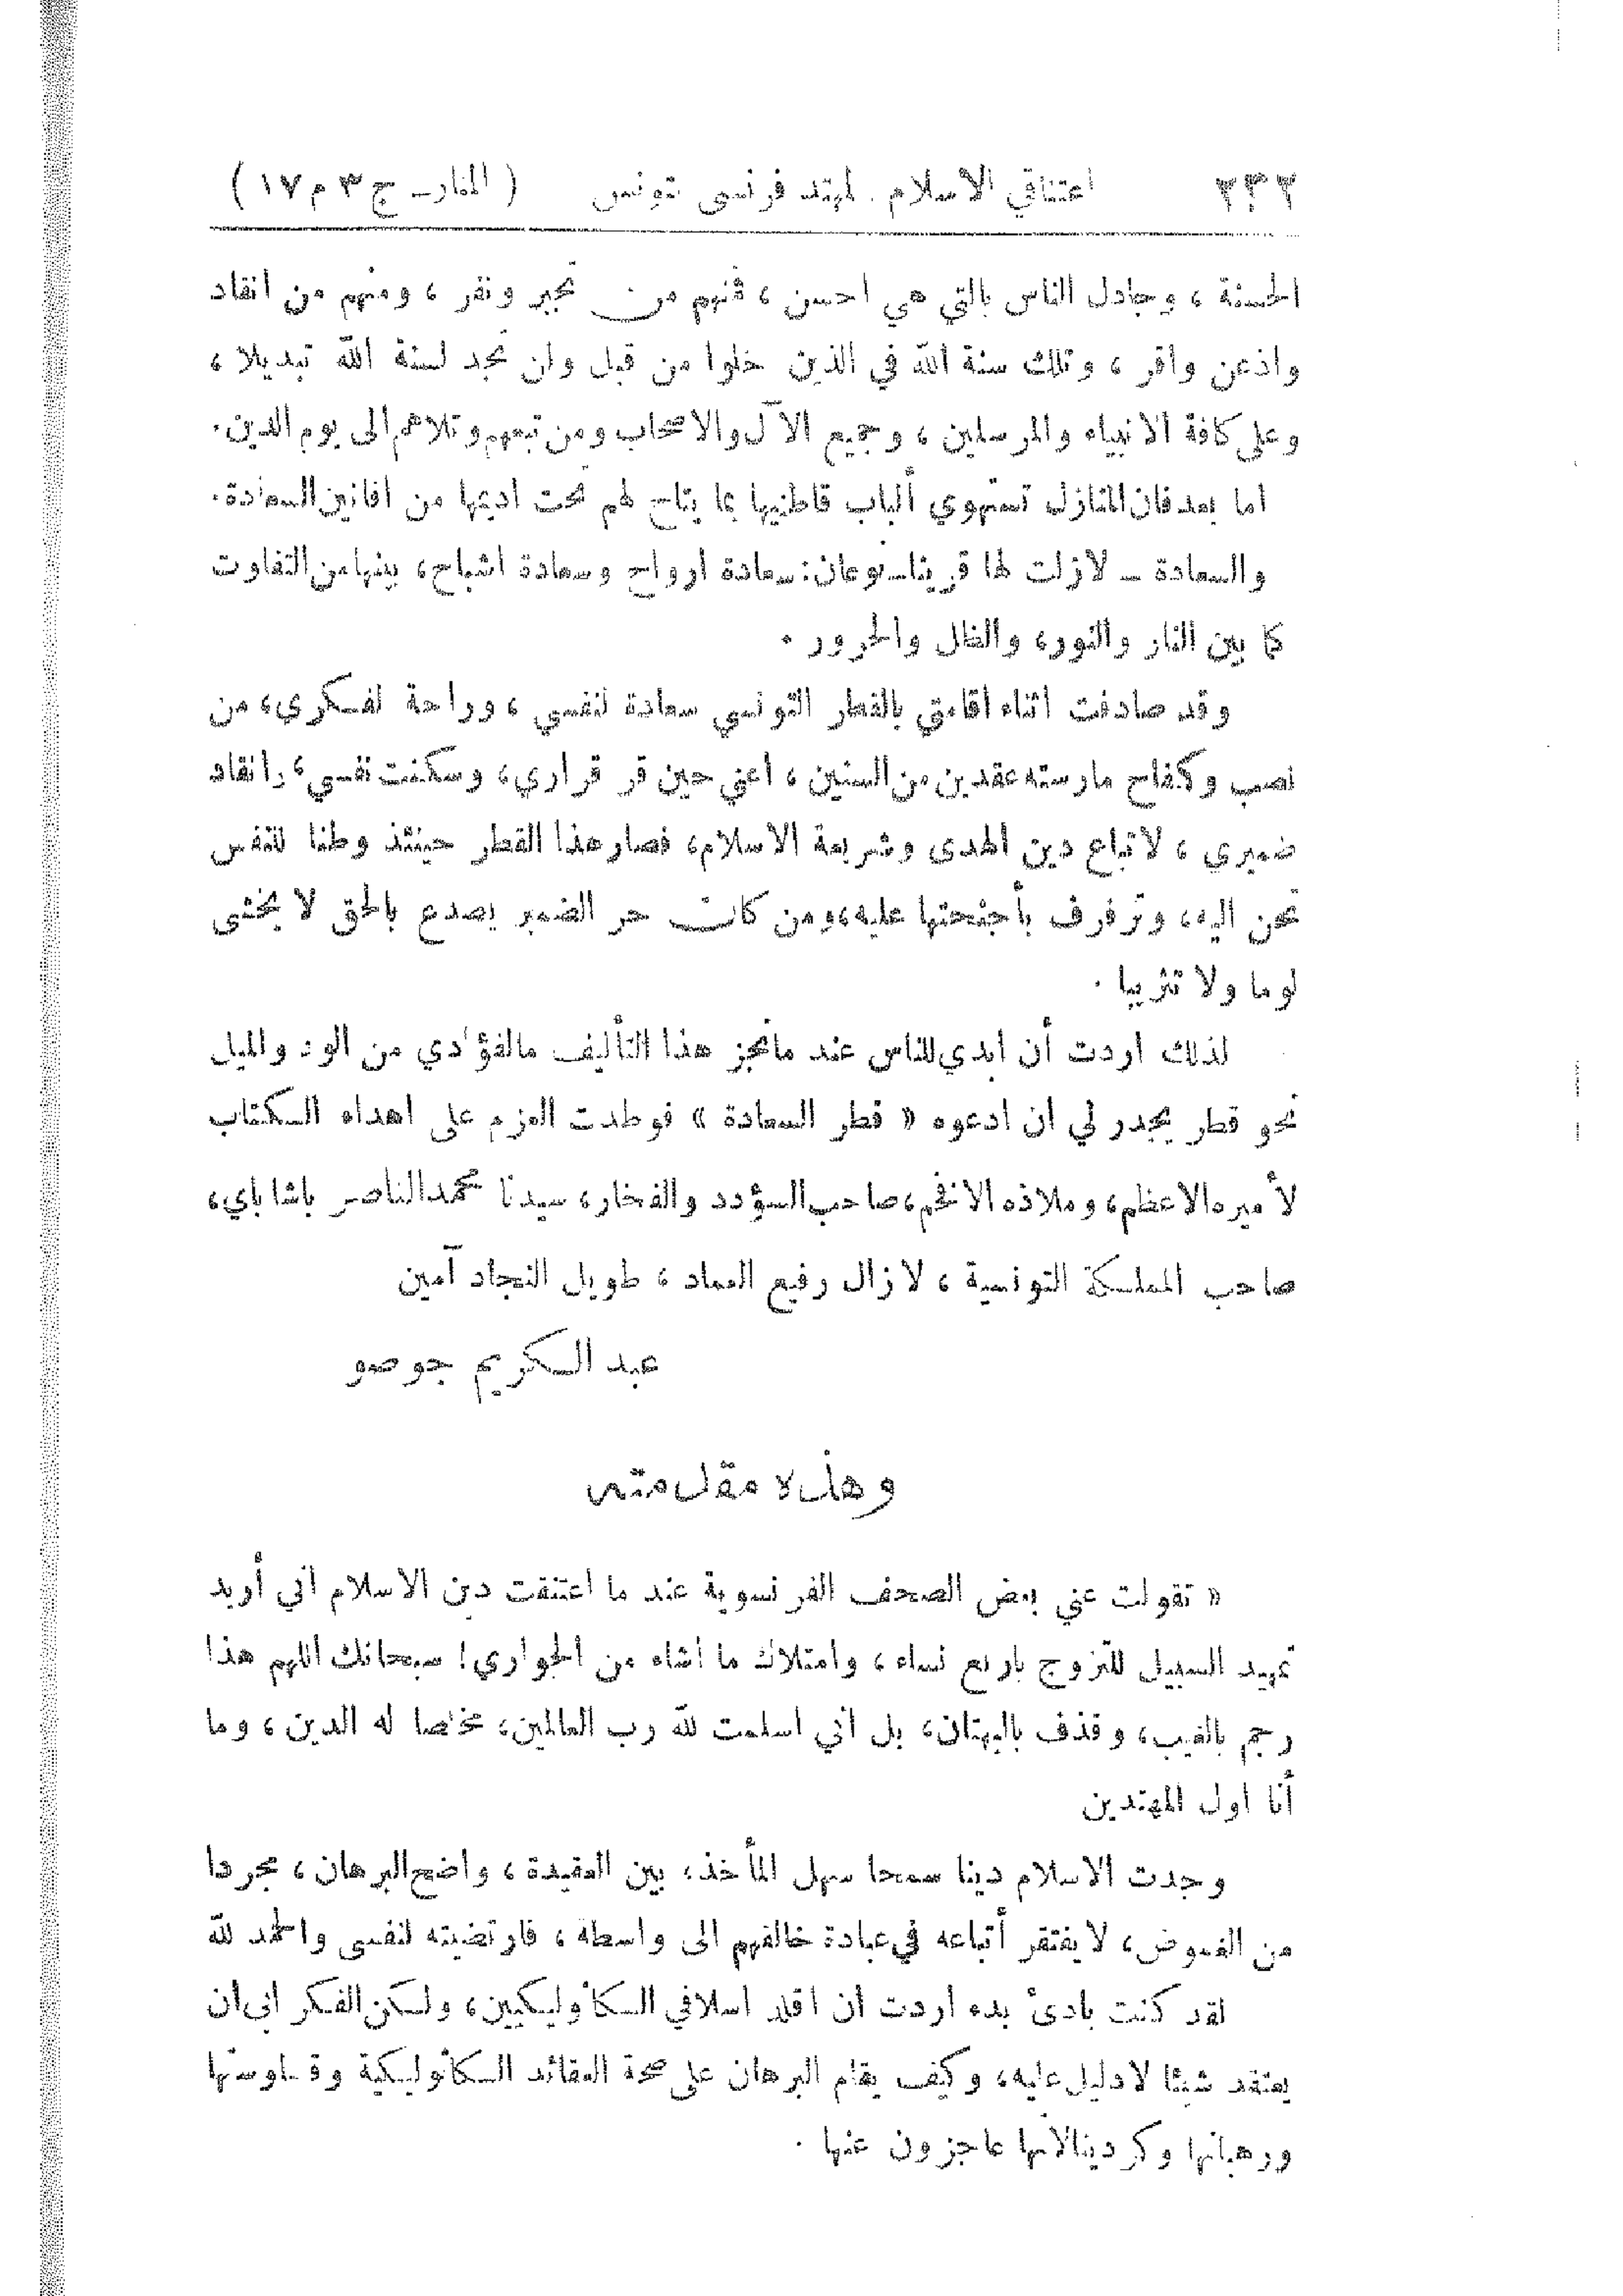 ٢٣٢ اعتناقي الاسلام . لمهتد فرنسي تونس ( المنار ـ ج ٣ م ١٧ )
الحسنة ، وجادل الناس بالتي هي احسن ، فمنهم من تجبر ونفر ، ومنهم من انقاد
واذعن واقر ، وتلك سنة الله في الذين خلوا من قبل ولن تجد لسنة الله تبديلا ،
وعلى كافة الانبياء والمرسلين ، وجميع الآل والاصحاب ومن تبعهم وتلاهم الى يوم الدين.
اما بعد فان المنازل تستهوي ألباب قاطنيها بما يتاح لهم تحت اديمها من افانين السعادة.
والسعادة ـ لازلت لها قرينا ـ نوعان: سعادة ارواح وسعادة اشباح، بينهما من التفاوت
كما بين النار والنور، والظل والحرور .
وقد صادفت اثناء اقامتي بالقطر التونسي سعادة لنفسي ، وراحة لفكري، من
نصب وكفاح مارسته عقدين من السنين ، اعني حين قر قراري، وسكنت نفسي، وانقاد
ضميري ، لاتباع دين الهدى وشريعة الاسلام، فصار هذا القطر حينئذ وطنا للنفس
تحن اليه، وترفرف بأجنحتها عليه، ومن كان حر الضمير يصدع بالحق لا يخشى
لوما ولا تثريبا .
لذلك اردت أن ابدي للناس عند ما نجز هذا التأليف ما لفؤادي من الود والميل
نحو قطر يجدر لي ان ادعوه « قطر السعادة » فوطدت العزم على اهداء الكتاب
لأميره الاعظم، وملاذه الافخم، صاحب السؤدد والفخار، سيدنا محمد الناصر باشا باي،
صاحب المملكة التونسية ، لازال رفيع العماد ، طويل النجاد آمين
عبد الكريم جوصو
وهذه مقدمته
« تقولت عني بعض الصحف الفرنسوية عند ما اعتنقت دين الاسلام اني أريد
تمهيد السبيل للتزوج باربع نساء ، وامتلاك ما اشاء من الجواري! سبحانك اللهم هذا
رجم بالغيب، وقذف بالبهتان، بل اني اسلمت لله رب العالمين، مخلصا له الدين ، وما
أنا اول المهتدين
وجدت الاسلام دينا سمحا سهل المأخذ، بين العقيدة ، واضح البرهان ، مجردا
من الغموض، لا يفتقر أتباعه في عبادة خالقهم الى واسطة ، فارتضيته لنفسي والحمد لله
لقد كنت بادئ بدء اردت ان اقلد اسلافي الكاثوليكيين، ولكن الفكر ابى ان
يعتقد شيئا لا دليل عليه، وكيف يقام البرهان على صحة العقائد الكاثوليكية وقساوستها
ورهبانها وكردينالاتها عاجزون عنها .